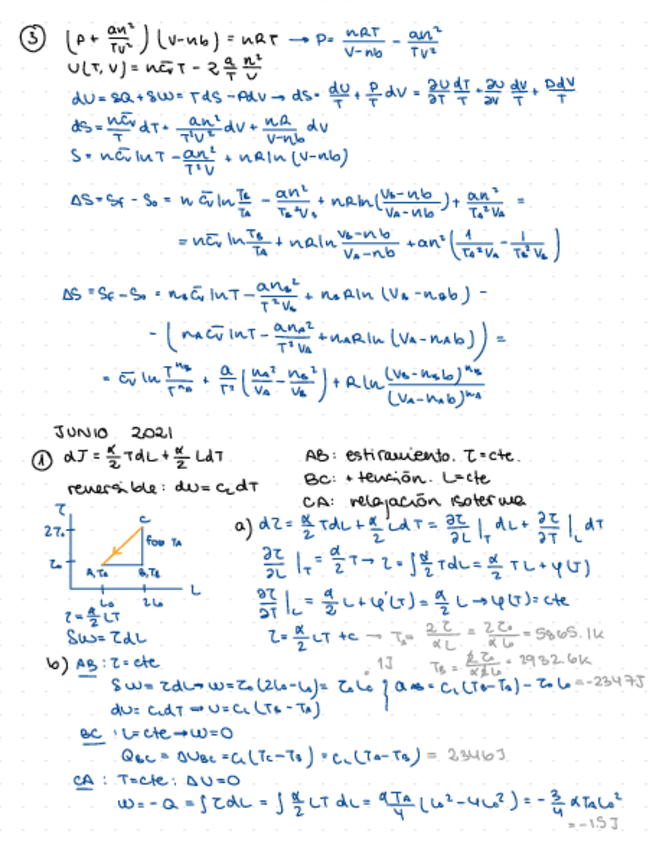 ③ (P + an²/TV²)(V-nb) = nRT → P = nRT/V-nb - an²/TV²
U(T,V) = nc̄vT - 2 a/T n²/V
dU = δQ + δW = TdS - PdV → dS = dU/T + P/T dV = ∂U/∂T dT/T + ∂U/∂V dV/T + PdV/T
dS = nc̄v/T dT + an²/T²V² dV + nR/V-nb dV
S = nc̄v lnT - an²/T²V + nRln(V-nb)
ΔS = Sf - S₀ = n c̄v ln TB/TA - an²/TB²VB + nRln(VB-nb/VA-nb) + an²/TA²VA =
= nc̄v ln TB/TA + nRln VB-nb/VA-nb + an²(1/TA²VA - 1/TB²VB)
ΔS = Sf - S₀ = nB c̄v lnT - anB²/T²VB + nB Rln (VB - nBb) -
- (nA c̄v lnT - anA²/T²VA + nARln (VA - nAb)) =
= c̄v ln T^nB/T^nA + a/T² (nA²/VA - nB²/VB) + Rln (VB-nBb)^nB/(VA-nAb)^nA
JUNIO 2021
① dτ = α/2 TdL + α/2 LdT
AB: estiramiento. τ=cte.
reversible: dU = cLdT
BC: + tensión. L=cte
CA: relajación isoterma
τ
2τ₀
τ₀
C
foco TA
A,TA
B,TB
L₀
2L₀
L
τ = α/2 LT
δW = τdL
a) dτ = α/2 TdL + α/2 LdT = ∂τ/∂L |T dL + ∂τ/∂T |L dT
∂τ/∂L |T = α/2 T → τ = ∫ α/2 TdL = α/2 TL + φ(T)
∂τ/∂T |L = α/2 L + φ'(T) = α/2 L → φ(T) = cte
τ = α/2 LT + c → TA = 2τ/αL = 2τ₀/αL₀ = 5865.1K
TB = 2τ₀/α2L₀ = 2932.6K
b) AB: τ = cte
1J
δW = τdL → W = τ₀(2L₀-L₀) = τ₀L₀ } QAB = cL(TB-TA) - τ₀L₀ = -2347J
dU = cLdT → U = cL(TB-TA)
BC: L=cte → W=0
QBC = ΔUBC = cL(TC-TB) = cL(TA-TB) = 2346J
CA: T=cte: ΔU=0
W = -Q = ∫τdL = ∫ α/2 LT dL = αTA/4 (L₀² - 4L₀²) = -3/4 αTAL₀²
= -1.5J